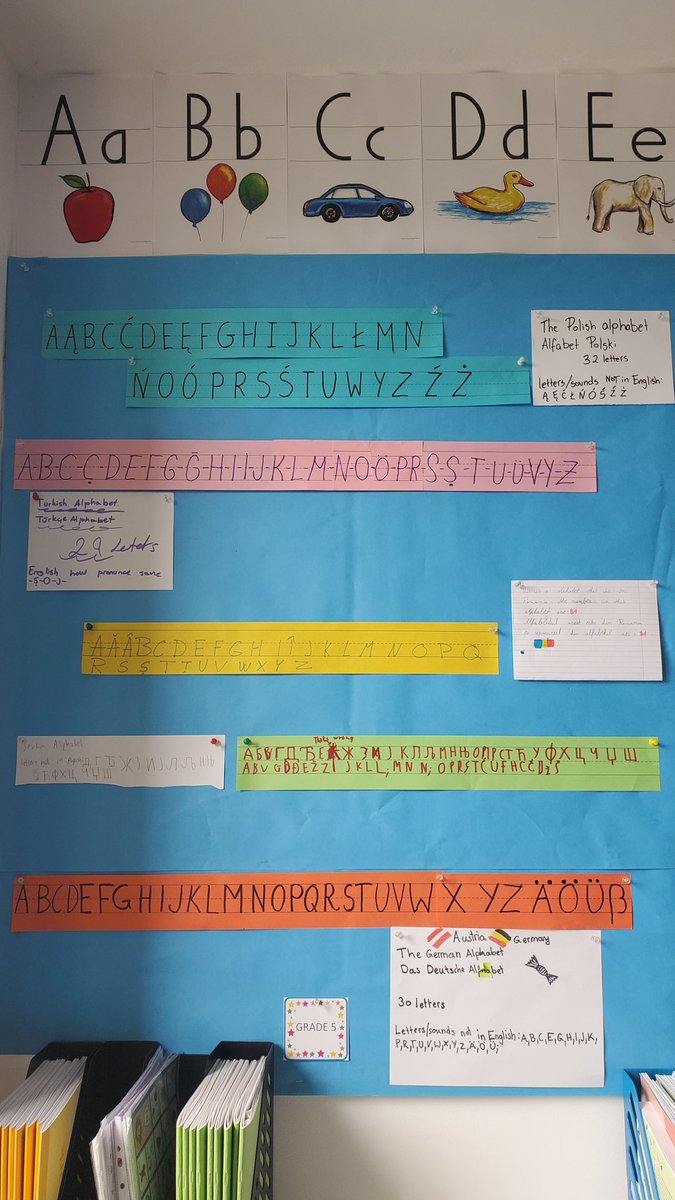 Aa Bb Cc Dd Ee
AĄBCĆDEĘFGHIJKLŁMN
ŃOÓPRSŚTUWYZŹŻ
The Polish alphabet
Alfabet Polski
32 letters
letters/sounds NOT in English:
Ą Ę Ć Ł Ń Ó Ś Ź Ż
ABCÇDEFGĞHIİJKLMNOÖPRSŞTUÜVYZ
Turkish Alphabet
Türkçe Alphabet
29 Leters
English how pronunce same
-Ş-O-J-
AĂÂBCDEFGHIÎJKLMNOPQ
RSȘTȚUVWXYZ
alphabet
in this
alphabet are: 31
31
Alphabet
АБВГДЂЕЖЗИЈКЛЉМНЊОПРСТЋУФХЦЧЏШ
ABCDEFGHIJKLMNOPQRSTUVWXYZÄÖÜß
Austria Germany
The German Alphabet
Das Deutsche Alphabet
30 letters
Letters/sounds not in English: A,B,C,E,G,H,I,J,K,
P,R,T,U,V,W,X,Y,Z,Ä,Ö,Ü;
GRADE 5